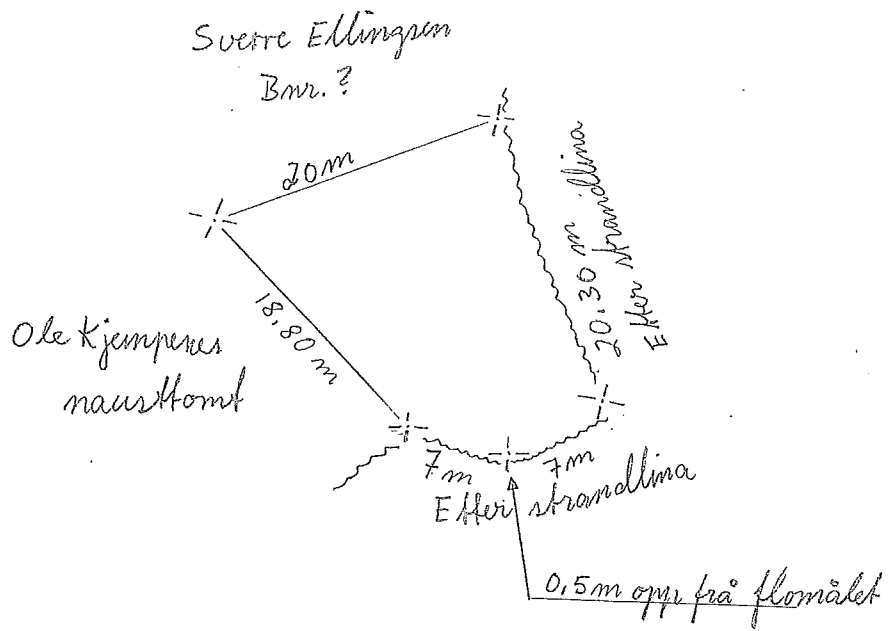 Sverre Ellingsen
Bnr. ?
20 m
20.30 m
Etter strandlina
18,80 m
Ole Kjempenes
nausttomt
7m
7m
Etter strandlina
0,5 m opp frå flomålet